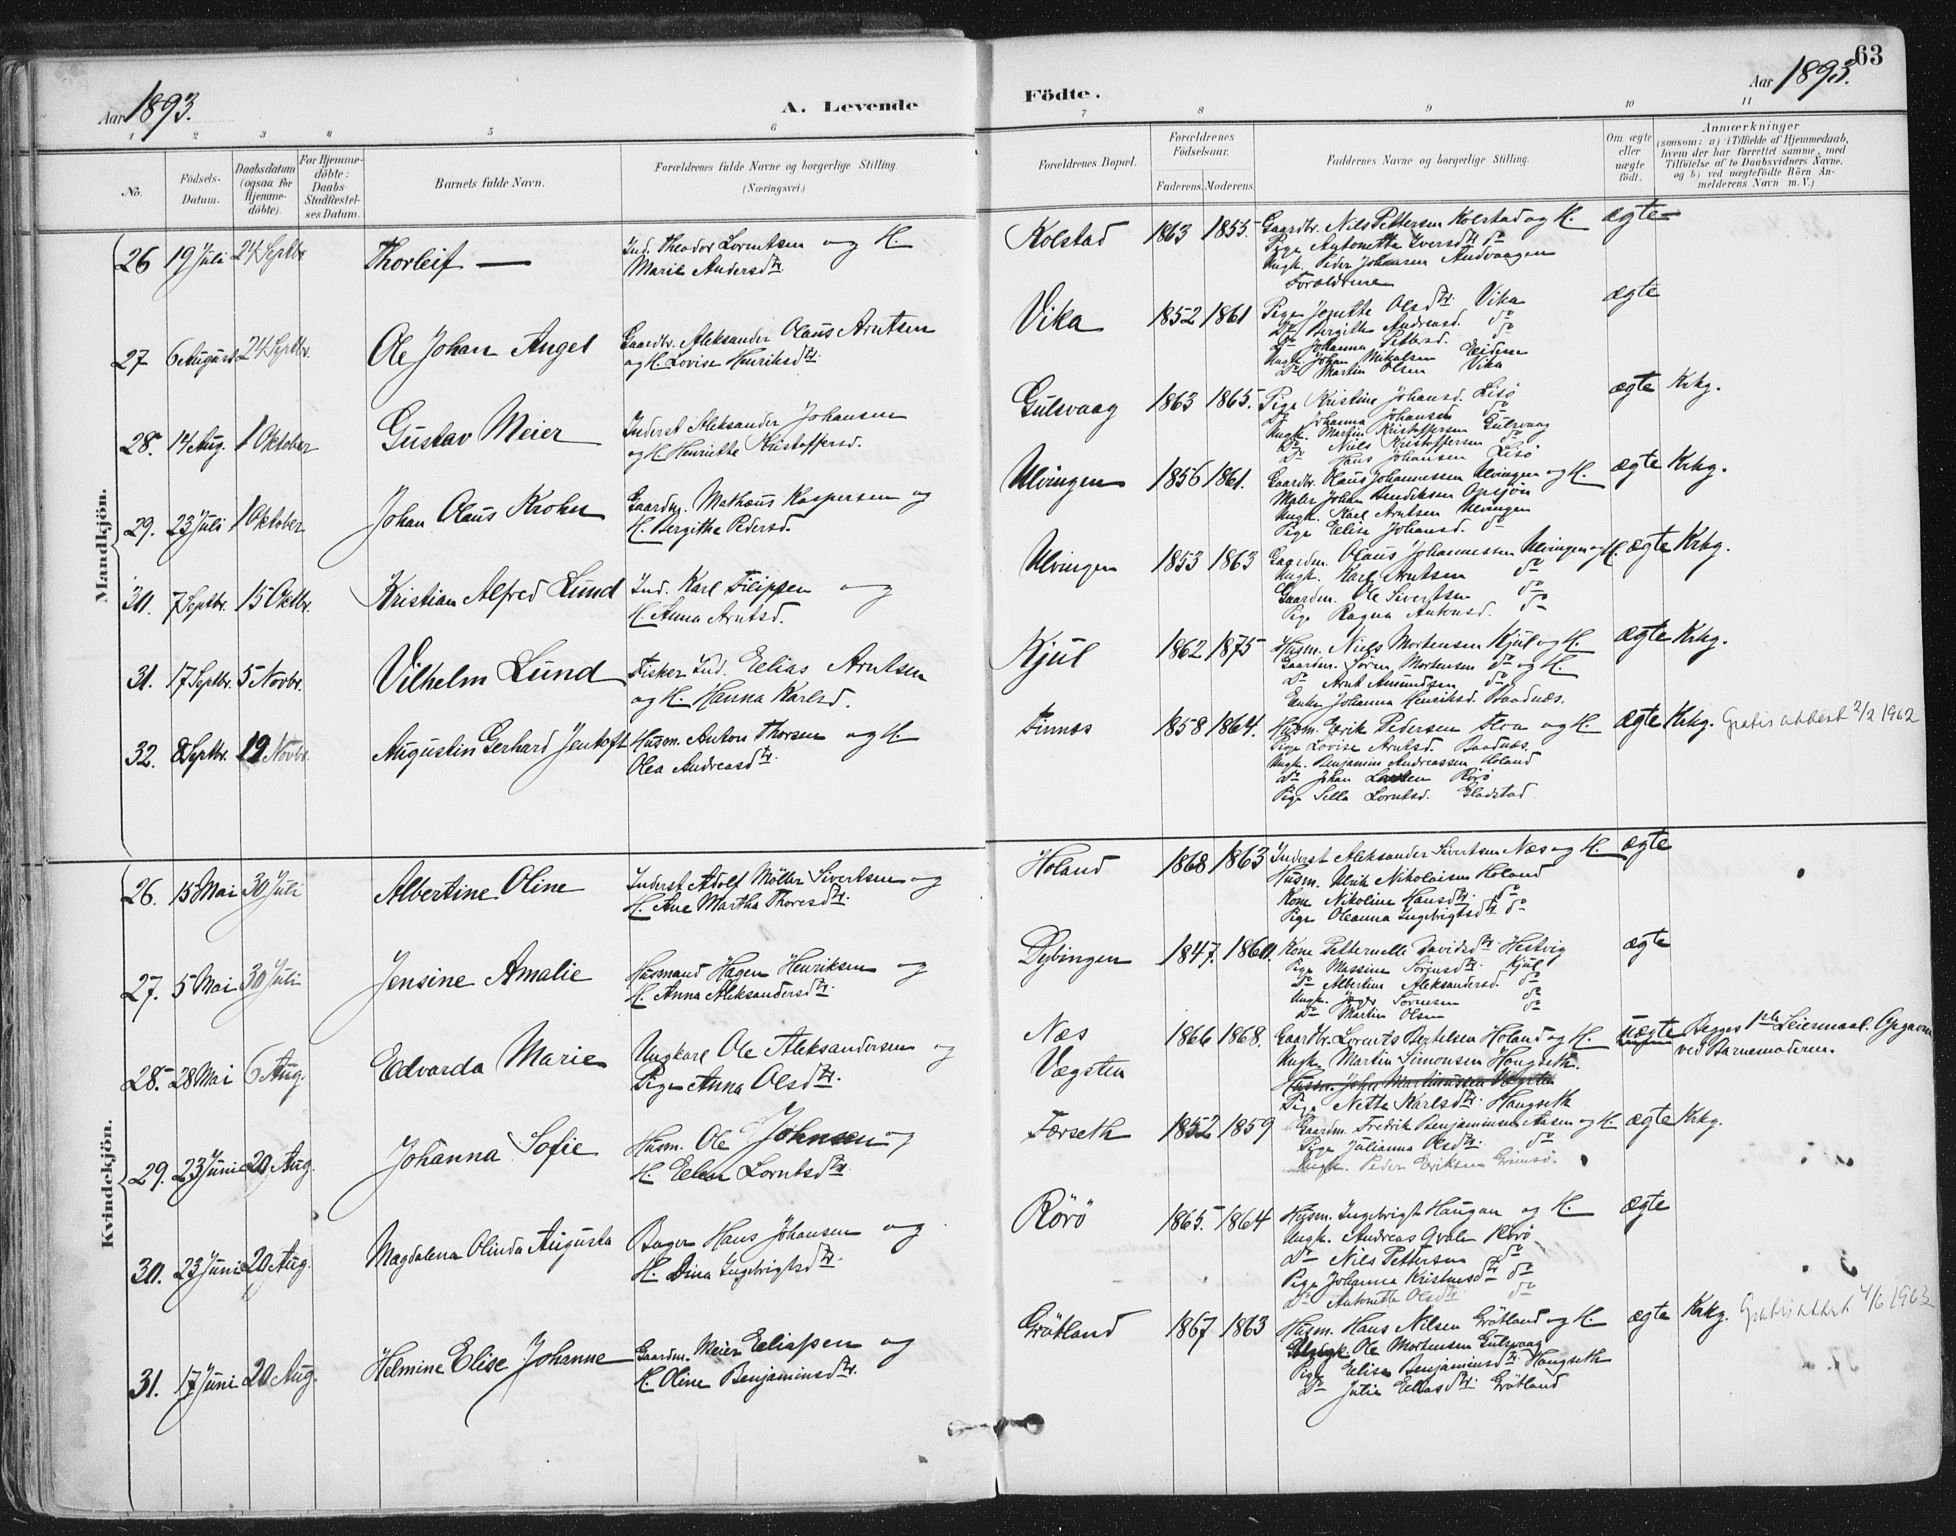 63
Aar 1893.
A. Levende
Födte.
Aar 1893.
1 2 3 4 5 6 7 8 9 10 11
No.
Födsels-Datum.
Daabsdatum (ogsaa for Hjemme-döbte).
For Hjemme-döbte: Daabs-Stadfæstel-ses Datum.
Barnets fulde Navn.
Forældrenes fulde Navne og borgerlige Stilling.
(Næringsvei.)
Forældrenes Bopæl.
Forældrenes Födselsaar.
Faderens. Moderens.
Faddernes Navne og borgerlige Stilling.
Om ægte eller uægte födt.
Anmærkninger
(saasom: a) i Tilfælde af Hjemmedaab, hvem der har forrettet samme, med Tilföielse af to Daabsvidners Navne, og b) ved uægtefödte Börn An-melderens Navn m. V.)
Mandkjön.
26 19 Juli 24 Septbr. Thorleif —
Ind. Theodor Lorentsen og H.
Marie Andersdtr.
Kolstad 1863 1855.
Gaardbr. Nils Pettersen Kolstad og H.
Pige Antonetta Iversdtr. do
Ungk. Peder Johansen Andvaagen
Forældrene
ægte
27 6 August 24 Septbr. Ole Johan Angel
Gaardbr. Aleksander Olaus Arntsen
og H. Lovise Henriksdtr.
Vika 1852 1861
Pige Jonette Olsdtr. Vika
Do Bergitte Andreasd. do
Do Johanna Pettersd. do
Ungk. Johan Mikalsen Eidem
Do Martin Olsen Vika
ægte
28. 14 Aug. 1 Oktober Gustav Meier
Inderst Aleksander Johansen
og H. Henriette Kristoffersd.
Gulsvaag 1863 1865.
Pige Kristine Johansd. Lisö
Do Johanna Johansd do
Ungk. Martin Kristoffersen Gulsvaag
Do Nils Kristoffersen do
Do Hans Johansen Lisö
ægte Krkg.
29. 23 Juli 1 Oktober Johan Olaus Krohn
Gaardm. Mathæus Kaspersen og
H. Bergitha Pedersd.
Ulvingen 1856 1861.
Gaardbr. Olaus Johannessen Ulvingen og H.
Maler Johan Bendiksen Opsjön
Ungk. Karl Arntsen Ulvingen
Pige Elise Johansd. do
ægte Krkg.
30. 7 Septbr. 15 Oktbr. Kristian Alfred Lund
Ind. Karl Filippsen og
H. Anna Arntsd.
Ulvingen 1853 1863
Gaardm. Olaus Johannessen Ulvingen og H.
Ungk. Karl Arntsen do
Gaardm. Ole Sivertsen do
Pige Ragna Antonsd. do
ægte Krkg.
31. 17 Septbr. 5 Novbr. Vilhelm Lund
Fisker Ind. Elias Arntsen
og H. Hanna Karlsd.
Kjul 1862 1875
Husm. Niels Mortensen Kjul og H.
Gaardm. Sören Mortensen do og H.
Do Arnt Amundsen do
Enke Johanna Henriksd. Baadnæs.
ægte Krkg.
32. 8 Septbr. 19 Novbr. Augustin Gerhard Jentoft
Husm. Anton Thorsen og H.
Olea Andreasdtr.
Finnæs 1858 1864.
Husm. Erik Pedersen Stva og H.
Pige Lovise Arntsd. Baadnæs.
Ungk. Benjamin Andreassen Holand
Do Johan Rörö
Pige Silla Lorntsd. Gladstad
ægte Krkg. Gratis attest 2/2 1962
Kvindekjön.
26. 15 Mai 30 Juli Albertine Oline
Inderst Adolf Möller Sivertsen og
H. Ane Martha Thoresdtr.
Holand 1868 1863
Inderst Aleksander Sivertsen Næs og H.
Husm. Ulrik Nikolaisen Holand
Kone Nikoline Hansdtr. do
Pige Oleanna Ingebrigtsdtr do
ægte
27. 5 Mai 30 Juli Jensine Amalie
Husmand Hagen Henriksen og
H. Anna Aleksandersdtr.
Dybingen 1847. 1860.
Kone Petternelle Davidsdtr. Hestvig
Pige Massina Sörensdtr. Kjul
Do Albertine Aleksandersd. do
Ungk. Jörgen Sörensen do
Do Martin Olsen do
ægte
28. 28 Mai 6 Aug. Edvarda Marie
Ungkarl Ole Aleksandersen og
Pige Anna Olsdtr.
Næs
Vægsten
1866 1868.
Gaardbr. Lorents Bertelsen Holand og H.
Ungk. Martin Simonsen Haugseth.
Husm. Johan Martinussen Vægsten
Pige Netta Karlsdtr. Haugseth
uægte
Begges 1ste Leiermaal. Opgaven
ved Barnemoderen.
29. 23 Juni 20 Aug. Johanna Sofie
Husm. Ole Johnsen og
H. Elen Lorntsdtr.
Forseth 1852 1859
Gaardm. Fredrik Benjaminsen Aasen og H.
Pige Julianna Olsdtr. do
Ungk. Peder Eriksen Grimsö.
ægte Krkg.
30. 23 Juni 20 Aug. Magdalena Olinda Augusta
Bager Hans Johansen og
H. Dina Ingebrigtsdtr.
Rörö 1865. 1864
Husm. Ingebrigt Haugan og H.
Ungk. Andreas Rörö
Do Nils Pettersen do
Pige Johanna Kristensdtr do
Do Antonette Olsdtr. do
ægte
31. 17 Juni 20 Aug. Helmine Elise Johanne
Gaardm. Meier Eliassen og
H. Oline Benjaminsdtr.
Grötland 1867 1863
Husm. Hans Nilsen Grötland og H.
Ungk. Ole Mortensen Gulsvaag
Pige Elise Benjaminsdtr. Haugseth
Do Julie Eliasdtr. Grötland
ægte Krkg. Gratis attest 4/6 1963